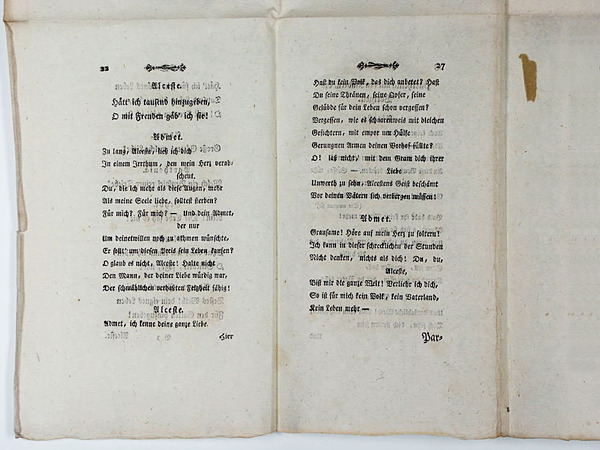 22
Alceste.
Hätt' ich tausend hinzugeben,
O mit Freuden gäb' ich sie!
Admet.
Zu lang, Alceste, ließ ich dich
In einem Irrthum, den mein Herz verab-
scheut.
Du, die ich mehr als diese Augen, mehr
Als meine Seele liebe, solltest sterben?
Für mich? Für mich? — Und dein Admet,
der nur
Um deinetwillen noch zu athmen wünschte,
Er sollt' um diesen Preis sein Leben kaufen?
O glaub es nicht, Alceste! Halte nicht
Den Mann, der deiner Liebe würdig war,
Der schmählichen verhaßten Feigheit fähig!
Alceste.
Admet, ich kenne deine ganze Liebe.
Hier
27
Hast du kein Volk, das dich anbetet? Hast
Du seine Thränen, seine Opfer, seine
Gelübde für dein Leben schon vergessen?
Vergessen, wie es schaarenweis mit bleichen
Gesichtern, mit empor um Hülfe
Gerungnen Armen deinen Vorhof füllte?
O! laß nicht, mit dem Gram dich ihrer
Liebe
Unwerth zu sehn, Alcestens Geist beschämt
Vor deinen Vätern sich verbergen müssen!
Admet.
Grausame! Höre auf mein Herz zu foltern!
Ich kann in dieser schrecklichen der Stunden
Nicht denken, nichts als dich! Du, du,
Alceste,
Bist mir die ganze Welt! Verliehr ich dich,
So ist für mich kein Volk, kein Vaterland,
Kein Leben mehr —
Par-